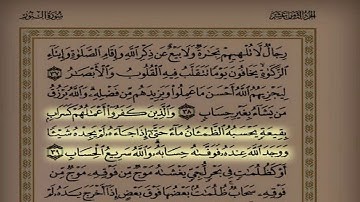 سُورَةُ النُّورِ
الجُزْءُ الثَّامِنَ عَشَرَ
رِجَالٌ لَّا تُلْهِيهِمْ تِجَٰرَةٌ وَلَا بَيْعٌ عَن ذِكْرِ ٱللَّهِ وَإِقَامِ ٱلصَّلَوٰةِ وَإِيتَآءِ
ٱلزَّكَوٰةِ يَخَافُونَ يَوْمًا تَتَقَلَّبُ فِيهِ ٱلْقُلُوبُ وَٱلْأَبْصَٰرُ ٣٧
لِيَجْزِيَهُمُ ٱللَّهُ أَحْسَنَ مَا عَمِلُوا۟ وَيَزِيدَهُم مِّن فَضْلِهِۦ وَٱللَّهُ يَرْزُقُ
مَن يَشَآءُ بِغَيْرِ حِسَابٍ ٣٨ وَٱلَّذِينَ كَفَرُوٓا۟ أَعْمَٰلُهُمْ كَسَرَابٍۭ
بِقِيعَةٍ يَحْسَبُهُ ٱلظَّمْـَٔانُ مَآءً حَتَّىٰٓ إِذَا جَآءَهُۥ لَمْ يَجِدْهُ شَيْـًٔا
وَوَجَدَ ٱللَّهَ عِندَهُۥ فَوَفَّىٰهُ حِسَابَهُۥ وَٱللَّهُ سَرِيعُ ٱلْحِسَابِ ٣٩
أَوْ كَظُلُمَٰتٍ فِى بَحْرٍ لُّجِّىٍّ يَغْشَىٰهُ مَوْجٌ مِّن فَوْقِهِۦ مَوْجٌ مِّن
فَوْقِهِۦ سَحَابٌ ظُلُمَٰتٌۢ بَعْضُهَا فَوْقَ بَعْضٍ إِذَآ أَخْرَجَ يَدَهُۥ لَمْ